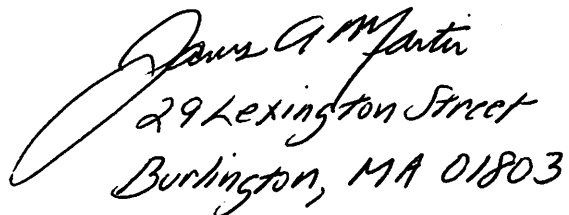 James A Martin
29 Lexington Street
Burlington, MA 01803